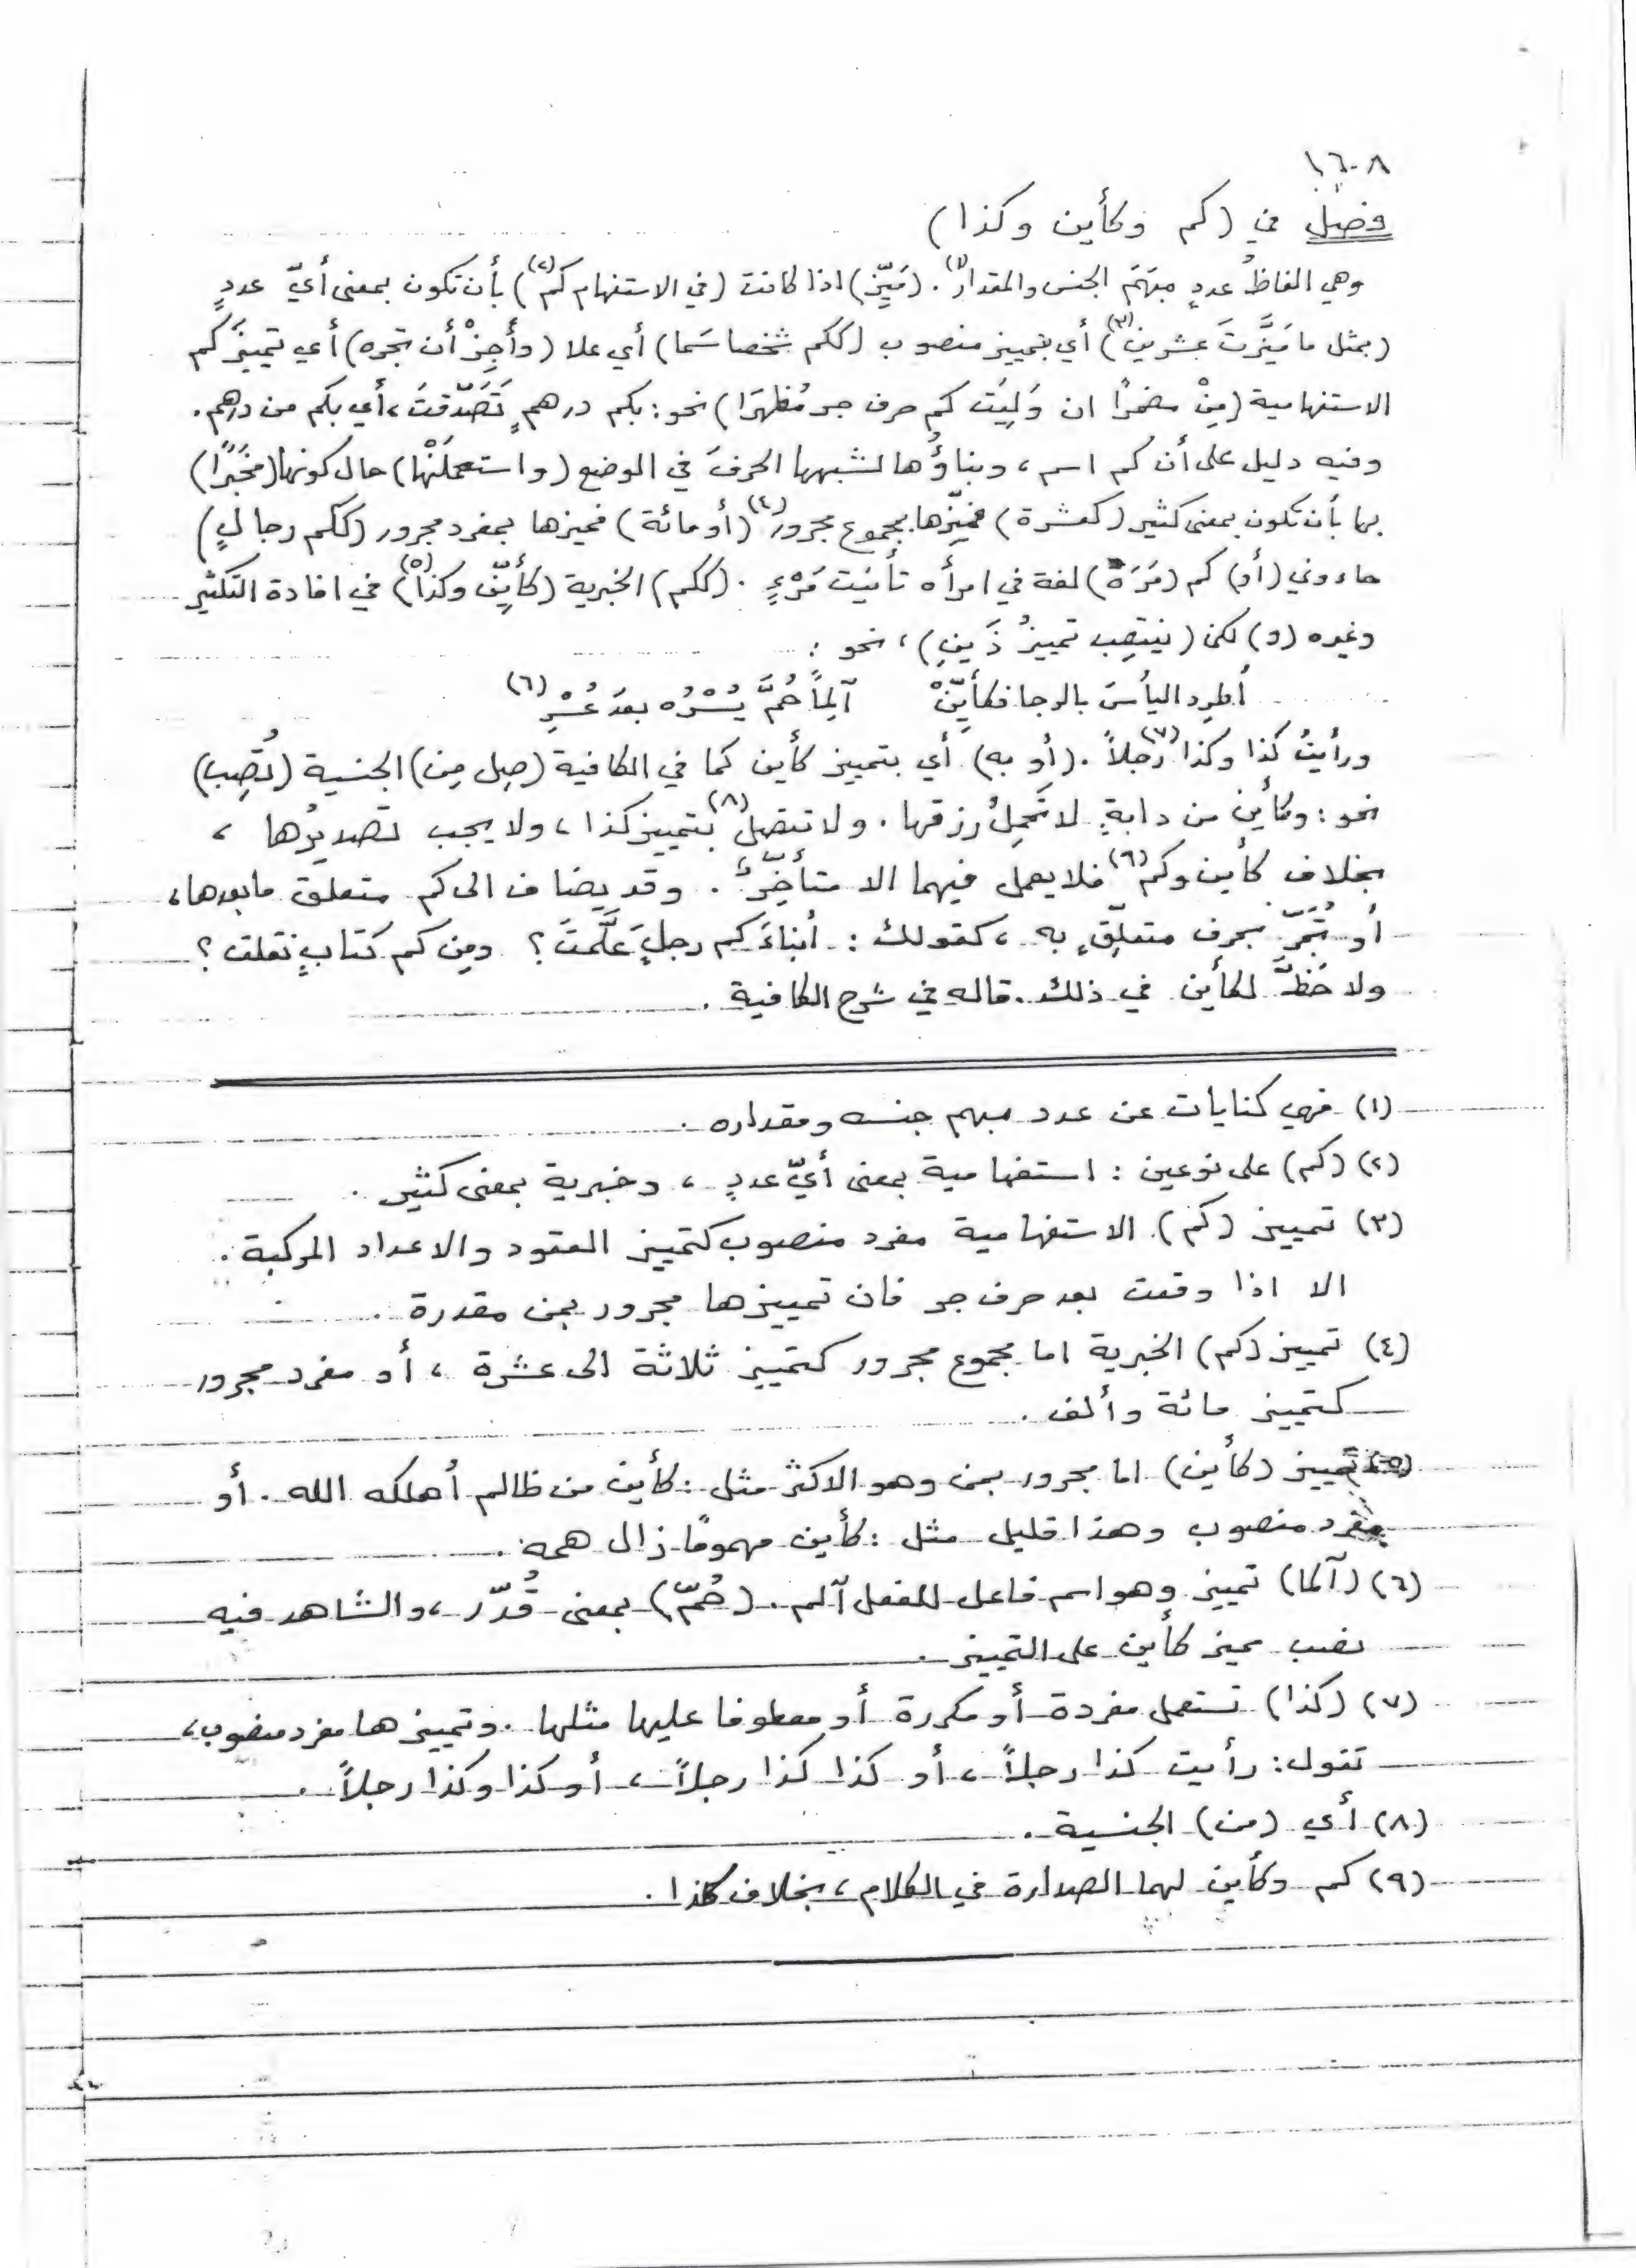 ١٦٠٨
فصل في (كم وكأين وكذا)
وهي الفاظُ عددٍ مبهَمُ الجنس والمقدار(١). (مَيِّز) اذا كانت (في الاستفهام كم(٢)) بأن تكون بمعنى أيّ عددٍ
(بمثل ما مَيَّزتَ عشرين(٣)) أي بتمييز منصوب (ككم شخصا سَما) أي علا (وأَجِزْ أن تجره) أي تمييزَ كم
الاستفهامية (مِنْ مضمرًا ان وَلِيَت كم حرف جر مُظهَرَا) نحو: بكم درهمٍ تَصَدّقتَ، أي بكم من درهم.
وفيه دليل على أن كم اسم، وبناؤُها لشبهها الحرفَ في الوضع (واستعملَنْها) حال كونها (مخبَرًا)
بها بأن تكون بمعنى كثير (كعشرة) فميِّزها بمجموع مجرور(٤) (أو مائة) فميزها بمفرد مجرور (ككم رجالٍ)
جاءوني (أو) كم (مَرَهْ) لغة في امرأه تأنيث مَرْءٍ. (ككم) الخبرية (كأيِّن وكذا(٥)) في افادة التكثير
وغيره (و) لكن (ينتصِب تمييزُ ذَينِ)، نحو:
أطرِد اليأسَ بالرجا فكأيِّنْ آلِماً حُمَّ يُسْرُه بعدَ عُسْرِ (٦)
ورأيتُ كذا وكذا(٧) رجلاً. (أو به) أي بتمييز كأين كما في الكافية (صِل مِن) الجنسية (تُصِب)
نحو: وكأين من دابةٍ لا تَحمِلُ رزقها. ولا تتصل(٨) بتمييز كذا، ولا يجب تصديرُها،
بخلاف كأين وكم(٦) فلا يعمل فيهما الا متأخِّرٌ. وقد يضاف الى كم متعلق ما بعدها،
أو تُجَرّ بحرف متعلِّقٍ به، كقولك: أبناءَ كم رجلٍ عَلَّمتَ؟ ومِن كم كتابٍ نقلت؟
ولا حَظَّ لكأين في ذلك. قاله في شرح الكافية.
(١) فهي كنايات عن عدد مبهم جنسه ومقداره.
(٢) (كم) على نوعين: استفهامية بمعنى أيّ عددٍ، وخبرية بمعنى كثير.
(٣) تمييز (كم) الاستفهامية مفرد منصوب كتمييز العقود والاعداد المركبة.
الا اذا وقعت بعد حرف جر فان تمييزها مجرور بمن مقدرة.
(٤) تمييز (كم) الخبرية اما مجموع مجرور كتمييز ثلاثة الى عشرة، أو مفرد مجرور
كتمييز مائة وألف.
(٥) تمييز (كأين) اما مجرور بمن وهو الاكثر مثل: كأين من ظالم أهلكه الله. أو
مفرد منصوب وهذا قليل مثل: كأين مهمومًا زال همه.
(٦) (آلما) تمييز وهو اسم فاعل للفعل آلم. (حُمّ) بمعنى قُدّر، والشاهد فيه
نصب مميز كأين على التمييز.
(٧) (كذا) تستعمل مفردة أو مكررة أو معطوفا عليها مثلها. وتمييزها مفرد منصوب،
تقول: رأيت كذا رجلاً، أو كذا كذا رجلاً، أو كذا وكذا رجلاً.
(٨) أي (من) الجنسية.
(٩) كم وكأين لهما الصدارة في الكلام، بخلاف كذا.